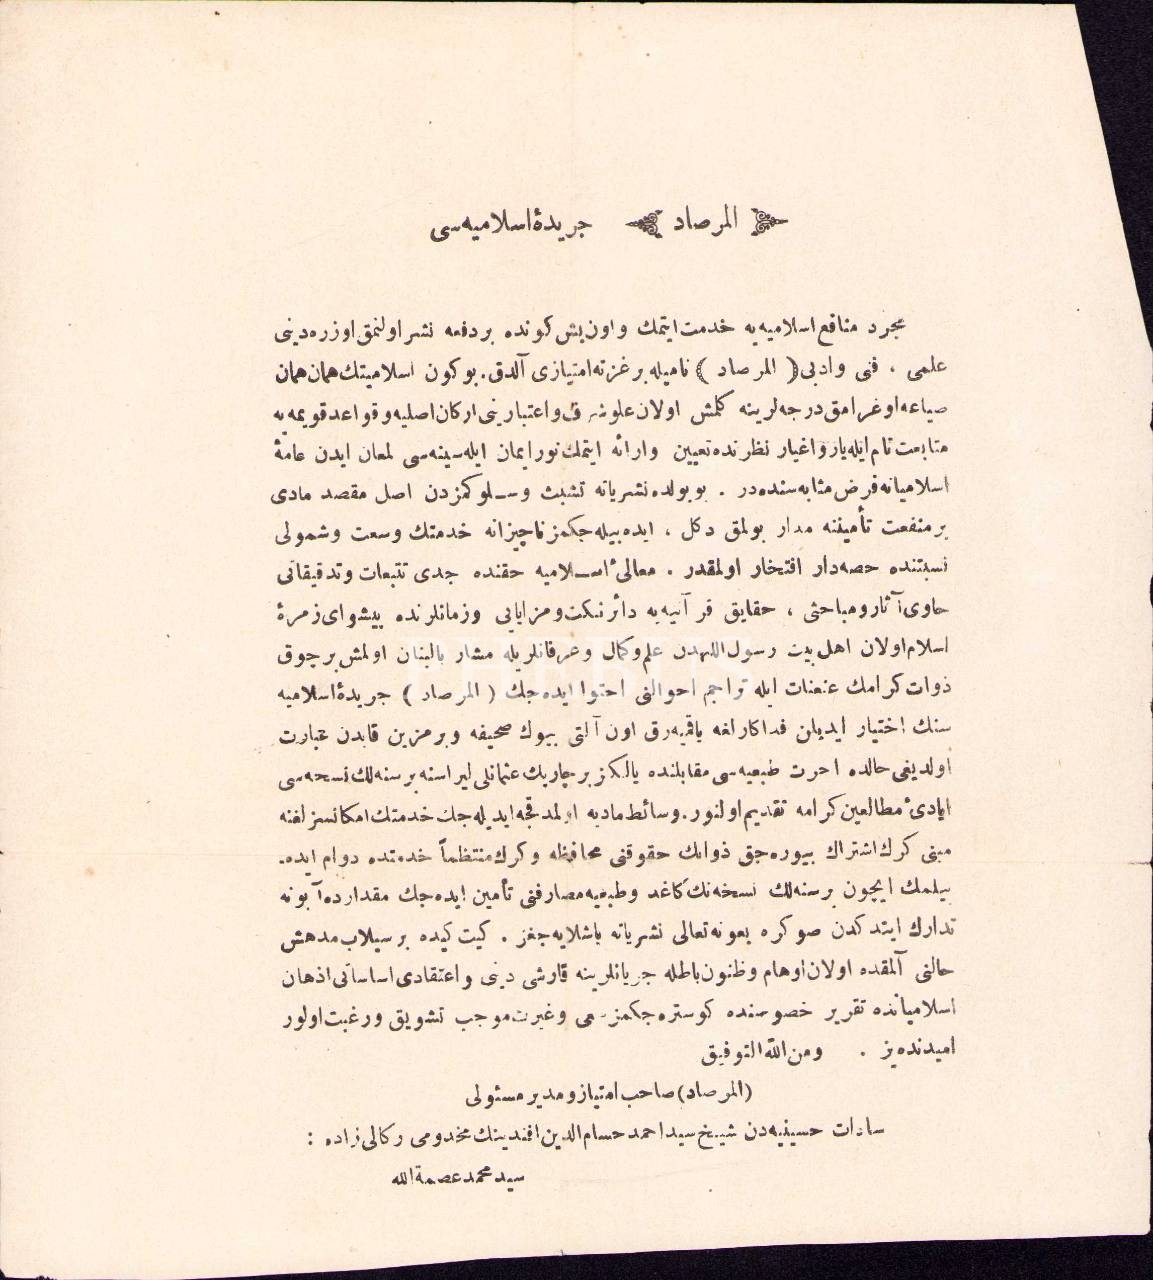 المرصاد جريدهٔ اسلاميه سی
مجرد منافع اسلاميه يه خدمت ايتمك واون بش كونده بر دفعه نشر اولنمق اوزره دينی
علمی ، فنی وادبی ( المرصاد ) ناميله بر غزته امتيازی آلدق . بو كون اسلاميتك همان همان
ضياعه اوغرامق درجه لرينه كلمش اولان علو شرف واعتبارينی اركان اصليه وقواعد قويمه يه
متابعت تام ايله يار واغيار نظرنده تعيين وارائه ايتمك نور ايمان ايله سينه سی لمعان ايدن عامهٔ
اسلاميانه فرض مثابه سنده در . بو يولده نشرياته تشبث وسلوكمزدن اصل مقصد مادی
بر منفعت تأميننه مدار بولمق دكل ، ايده بيله جكمز ناچيزانه خدمتك وسعت وشمولی
نسبتنده حصه دار افتخار اولمقدر . معالیٔ اسلاميه حقنده جدی تتبعات وتدقيقاتی
حاوی آثار ومباحثی ، حقايق قرآنيه يه دائر نكت ومزايايی وزمانلرنده پيشوای زمرهٔ
اسلام اولان اهل بيت رسول اللهدن علم وكمال وعرفانلريله مشار بالبنان اولمش بر چوق
ذوات كرامك عنعنات ايله تراجم احوالنی احتوا ايده جك ( المرصاد ) جريدهٔ اسلاميه
سنك اختيار ايديلن فداكارلغه باقميه رق اون آلتی بيوك صحيفه وبر مزين قابدن عبارت
اولديغی حالده اجرت طبعيه سی مقابلنده يالكز بر چاريك عثمانلی ليراسنه بر سنه لك نسخه سی
ايادیٔ مطالعين كرامه تقديم اولنور . وسائط ماديه اولمدقجه ايديله جك خدمتك امكانسزلغنه
مبنی كرك اشتراك بيوره جق ذواتك حقوقنی محافظه وكرك منتظماً خدمتده دوام ايده
بيلمك ايچون بر سنه لك نسخه نك كاغد وطبعيه مصارفنی تأمين ايده جك مقدارده آبونه
تدارك ايتدكدن صوكره بعونه تعالی نشرياته باشلايه جغز . كيت كيده بر سيلاب مدهش
حالنی آلمقده اولان اوهام وظنون باطله جريانلرينه قارشی دينی واعتقادی اساساتی اذهان
اسلاميانده تقرير خصوصنده كوستره جكمز سعی وغيرت موجب تشويق ورغبت اولور
اميدنده يز . ومن الله التوفيق
(المرصاد) صاحب امتياز ومدير مسئولی
سادات حسينيه دن شيخ سيد احمد حسام الدين افندينك مخدومی ركالی زاده :
سيد محمد عصمة الله